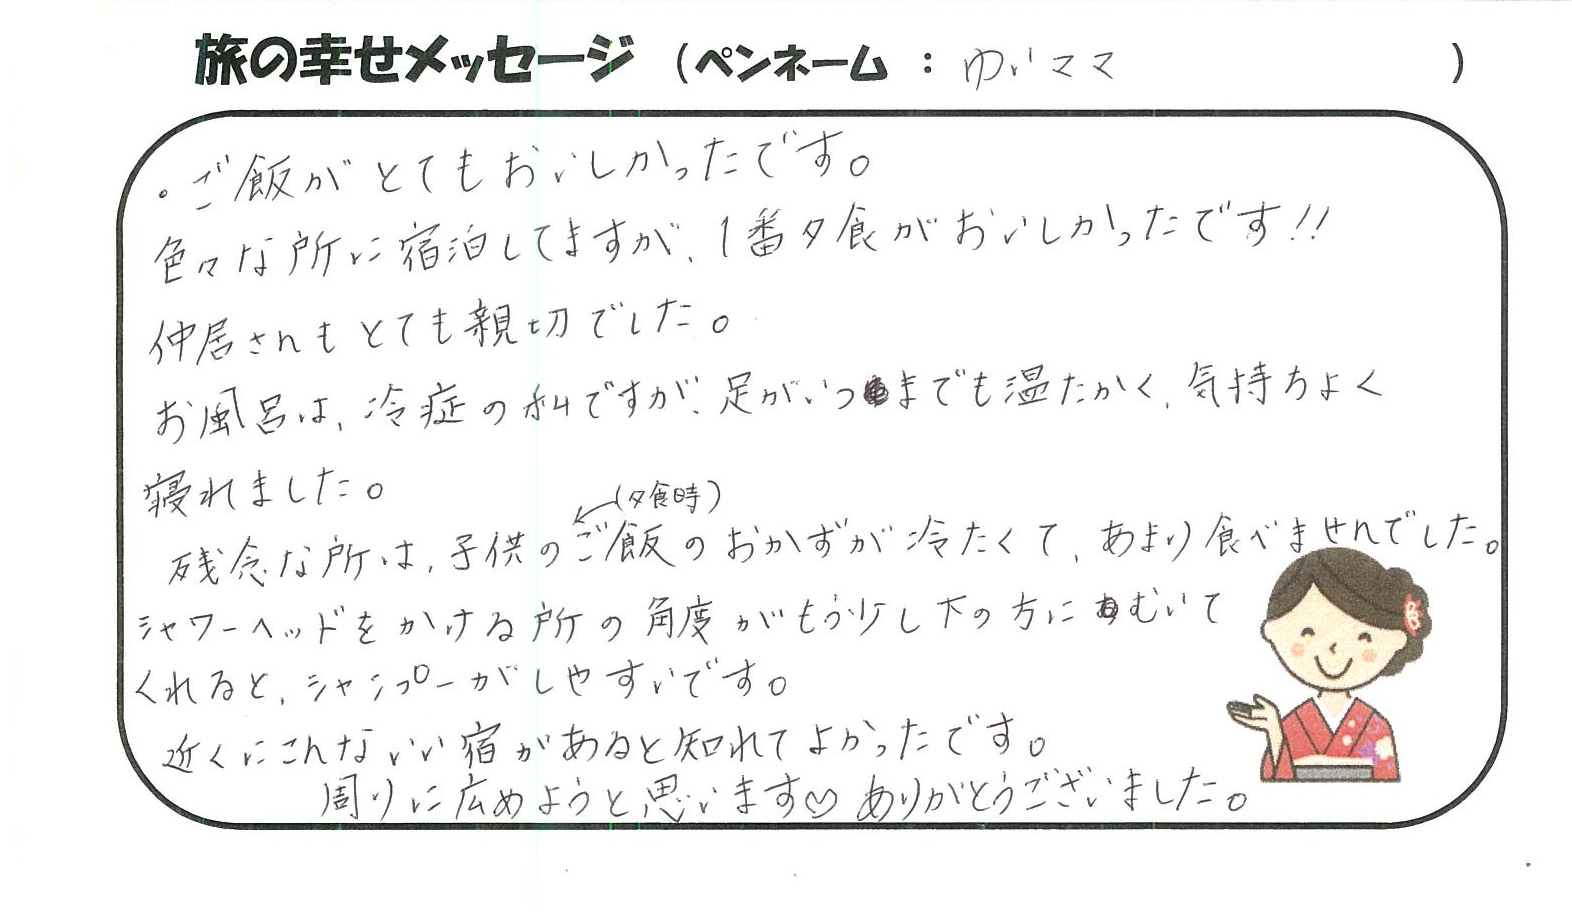 旅の幸せメッセージ (ペンネーム : ゆいママ )
・ご飯がとてもおいしかったです。
色々な所に宿泊してますが、1番夕食がおいしかったです!!
仲居さんもとても親切でした。
お風呂は、冷症の私ですが、足がいつまでも温たかく、気持ちよく
寝れました。
(夕食時)
残念な所は、子供のご飯のおかずが冷たくて、あまり食べませんでした。
シャワーヘッドをかける所の角度がもう少し下の方にむいて
くれると、シャンプーがしやすいです。
近くにこんないい宿があると知れてよかったです。
周りに広めようと思います♡ ありがとうございました。